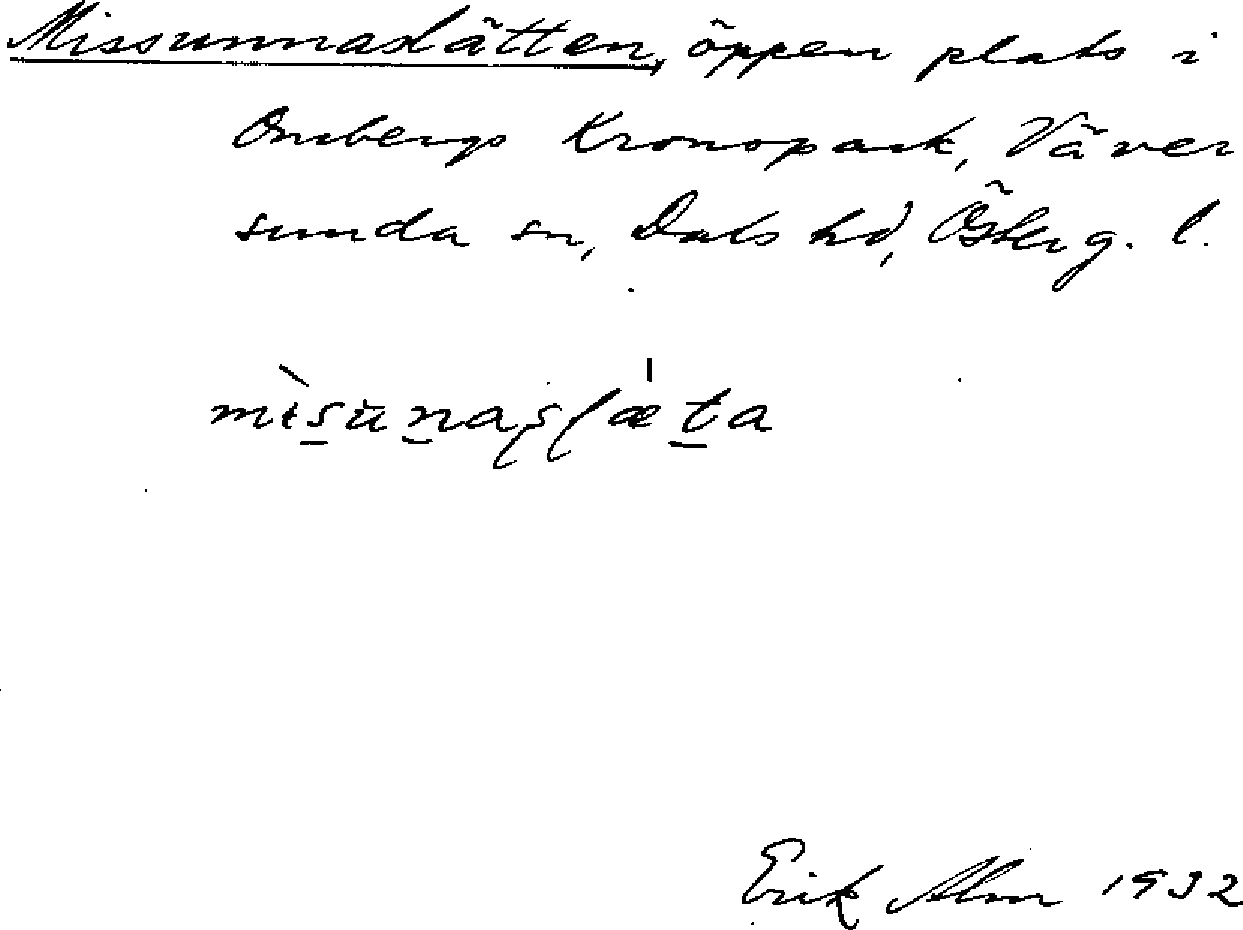 Missunnaslätten, öppen plats i
Ombergs Kronopark, Väver
sunda sn, Dals hd, Österg. l.
misunaslæta
Erik Alm 1932